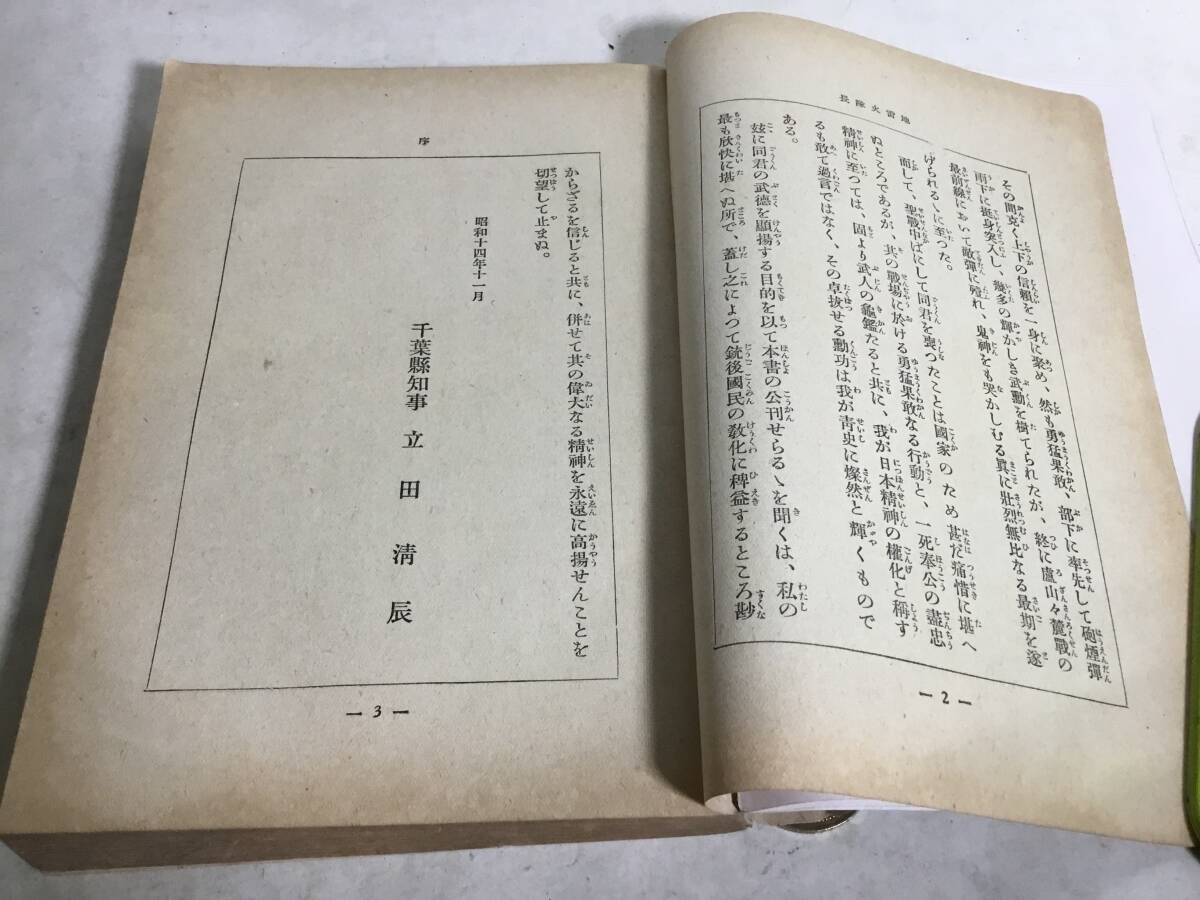 地雷火隊長
その間克く上下の信頼を一身に聚め、然も勇猛果敢、部下に率先して砲煙彈
雨下に挺身突入し、幾多の輝かしき武勳を樹てられたが、終に廬山々麓戰の
最前線において敵彈に殪れ、鬼神をも哭かしむる眞に壯烈無比なる最期を遂
げられるゝに至つた。
而して、聖戰中ばにして同君を喪つたことは國家のため甚だ痛惜に堪へ
ぬところであるが、其の戰場に於ける勇猛果敢なる行動と、一死奉公の盡忠
精神に至つては、固より武人の龜鑑たると共に、我が日本精神の權化と稱す
るも敢て過言ではなく、その卓拔せる勳功は我が靑史に燦然と輝くもので
ある。
玆に同君の武德を顯揚する目的を以て本書の公刊せらるゝを聞くは、私の
最も欣快に堪へぬ所で、蓋し之によつて銃後國民の敎化に裨益するところ尠
— 2 —
序
からざるを信じると共に、併せて其の偉大なる精神を永遠に高揚せんことを
切望して止まぬ。
昭和十四年十一月
千葉縣知事 立田淸辰
— 3 —